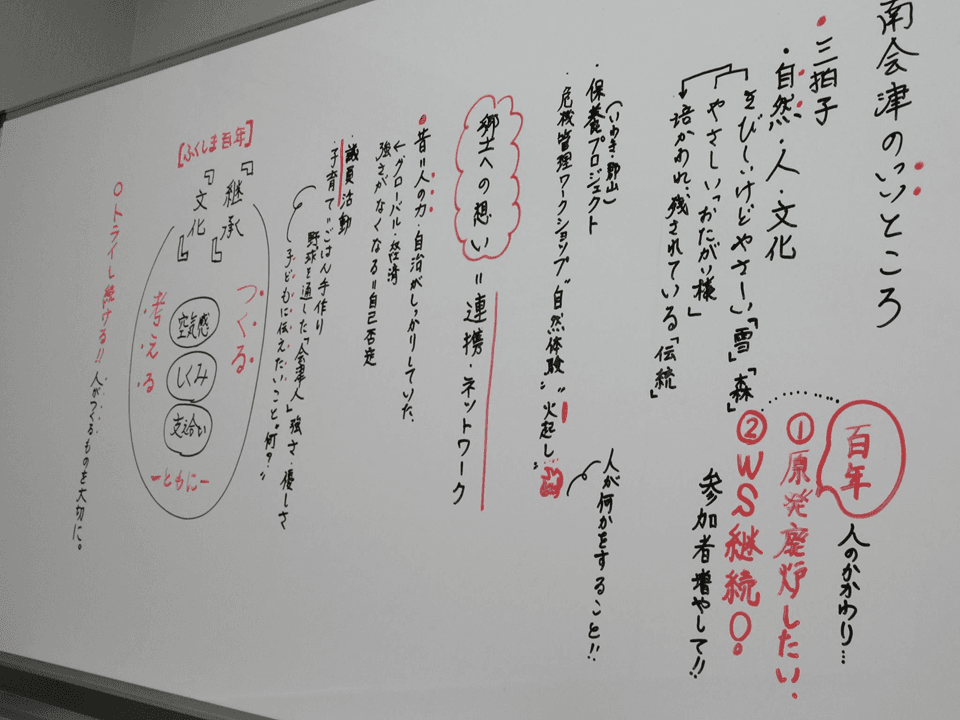 南会津のいいところ
・三拍子
・自然・人・文化
きびしいけどやさしい「雪」「森」
やさしい「おたがい様」
培かわれ、残されている「伝統」
百年
人のかかわり…
①原発廃炉したい、
②WS継続〇。
参加者増やして!!
(いわき・郡山)
・保養プロジェクト
・危機管理ワークショップ"自然体験"火起し…"
人が何かをすること!!
郷土への想い=連携・ネットワーク
・昔=人の力・自治がしっかりしていた。
←グローバル・経済
強さがなくなる=自己否定
・議員活動
・子育て="ごはん手作り
野球を通した「会津人」強さ・優しさ
子どもに伝えたいこと。何?"
[ふくしま百年]
『継承』
『文化』
つくる
空気感
しくみ
支え合い
考える
ーともにー
〇トライし続ける!!人がつくるものを大切に。